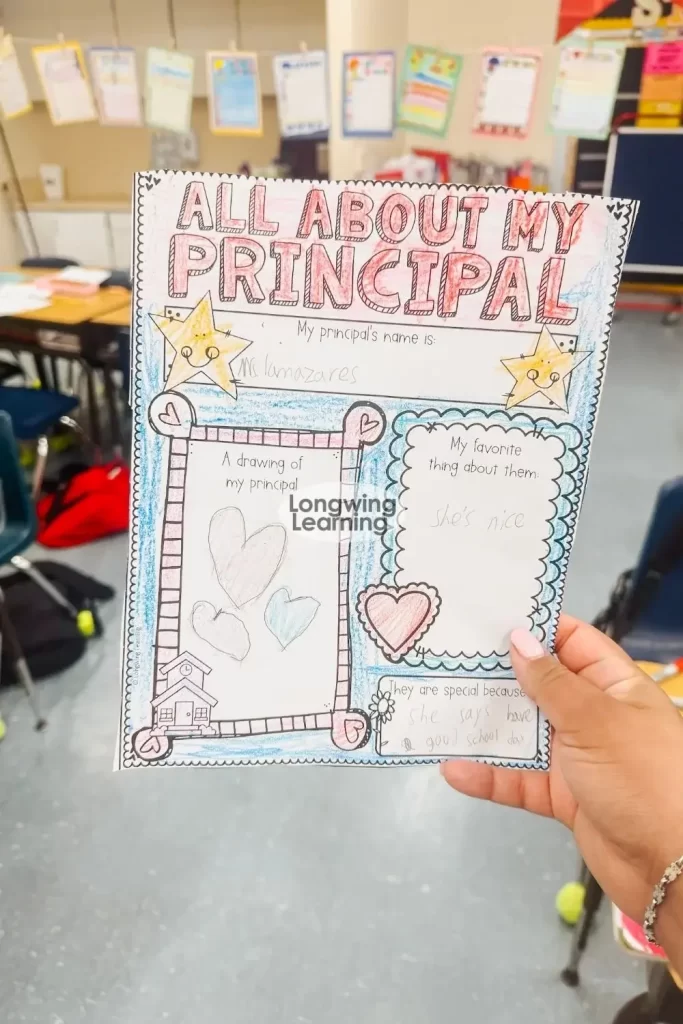 ALL ABOUT MY
PRINCIPAL
My principal's name is:
Ms lamazares
A drawing of
my principal
My favorite
thing about them:
she's nice
Longwing
Learning
They are special because
She says have
a good school day